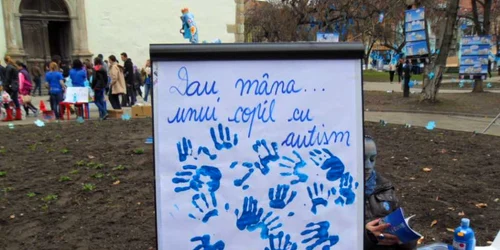 Dau mâna...
unui copil cu
autism